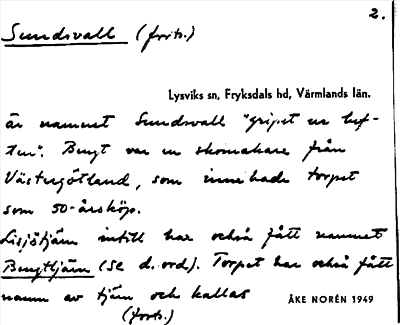 2.
Sundsvall (forts.)
Lysviks sn, Fryksdals hd, Värmlands län.
är namnet Sundsvall "gripet ur luf-
ten". Bengt var en skomakare från
Västergötland, som innehade torpet
som 50-årsköp.
Lisjötjärn intill har också fått namnet
Bengttjärn (se d. ord). Torpet har också fått
namn av tjärn och kallas
(forts.)
ÅKE NORÉN 1949